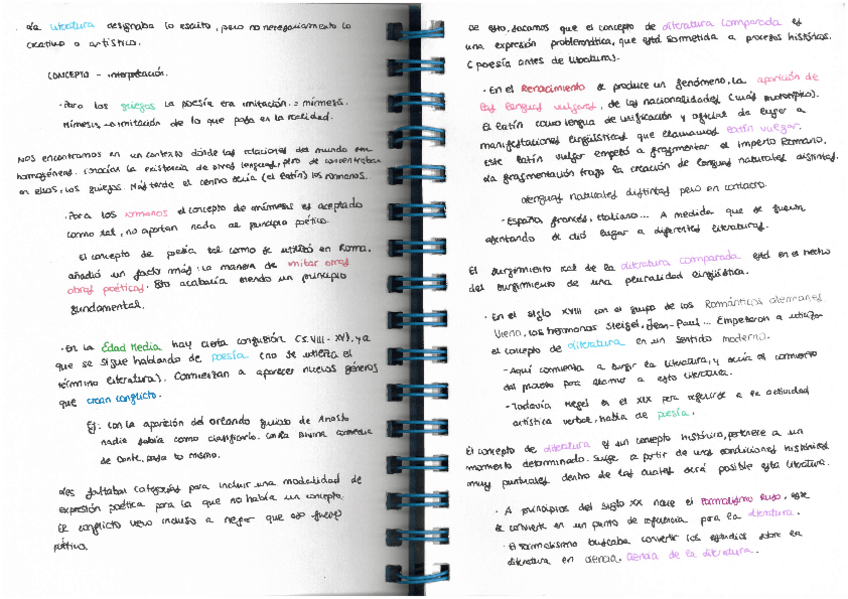 La literatura designaba lo escrito, pero no necesariamente lo
creativo o artístico.
CONCEPTO - interpretación.
· Para los griegos la poesía era imitación = mímesis.
Mímesis → imitación de lo que pasa en la realidad.
Nos encontramos en un contexto donde las relaciones del mundo son
homogéneas. Conocían la existencia de otras lenguas, pero se concentraban
en ellos, los griegos. Más tarde el centro sería (el latín) los romanos.
· Para los romanos el concepto de mímesis es aceptado
como tal, no aportan nada al principio poético.
El concepto de poesía tal como se utilizó en Roma,
añadió un factor más: la manera de imitar otras
obras poéticas. Esto acabaría siendo un principio
fundamental.
· En la Edad Media hay cierta confusión (s. VIII - XV), ya
que se sigue hablando de poesía (no se utiliza el
término literatura). Comienzan a aparecer nuevos géneros
que crean conflicto.
Ej: con la aparición del Orlando furioso de Ariosto
nadie sabía como clasificarlo. Con la Divina Comedia
de Dante, pasa lo mismo.
Les faltaban categorías para incluir una modalidad de
expresión poética para la que no había un concepto.
El conflicto llevó incluso a negar que eso fuese
poético.
De esto, sacamos que el concepto de literatura comparada es
una expresión problemática, que está sometida a procesos históricos.
(poesía antes de literatura).
· En el Renacimiento se produce un fenómeno, la aparición de
las lenguas vulgares, de las nacionalidades
El latín como lengua de unificación y oficial da lugar a
manifestaciones lingüísticas que llamamos latín vulgar.
Este latín vulgar empezó a fragmentar el imperio Romano.
La fragmentación trajo la creación de lenguas naturales distintas.
Lenguas naturales distintas pero en contacto.
- España, Francés, Italiano... A medida que se fueron
asentando se dió lugar a diferentes literaturas.
El surgimiento real de la literatura comparada está en el hecho
del surgimiento de una pluralidad lingüística.
· En el siglo XVIII con el grupo de los Románticos alemanes
los hermanos Jean-Paul... Empezaron a utilizar
el concepto de literatura en un sentido moderno.
- Aquí comienza a surgir la literatura, y sería el comienzo
del proceso para llamar a esto literatura.
- Todavía Hegel en el XIX para referirse a la actividad
artística verbal, habla de poesía.
El concepto de literatura es un concepto histórico, pertenece a un
momento determinado. Surge a partir de unas condiciones históricas
muy puntuales dentro de las cuales será posible esta literatura.
· A principios del siglo XX nace el Formalismo Ruso, este
se convierte en un punto de referencia para la literatura.
· El formalismo buscaba convertir los estudios sobre la
literatura en ciencia. Ciencia de la literatura.